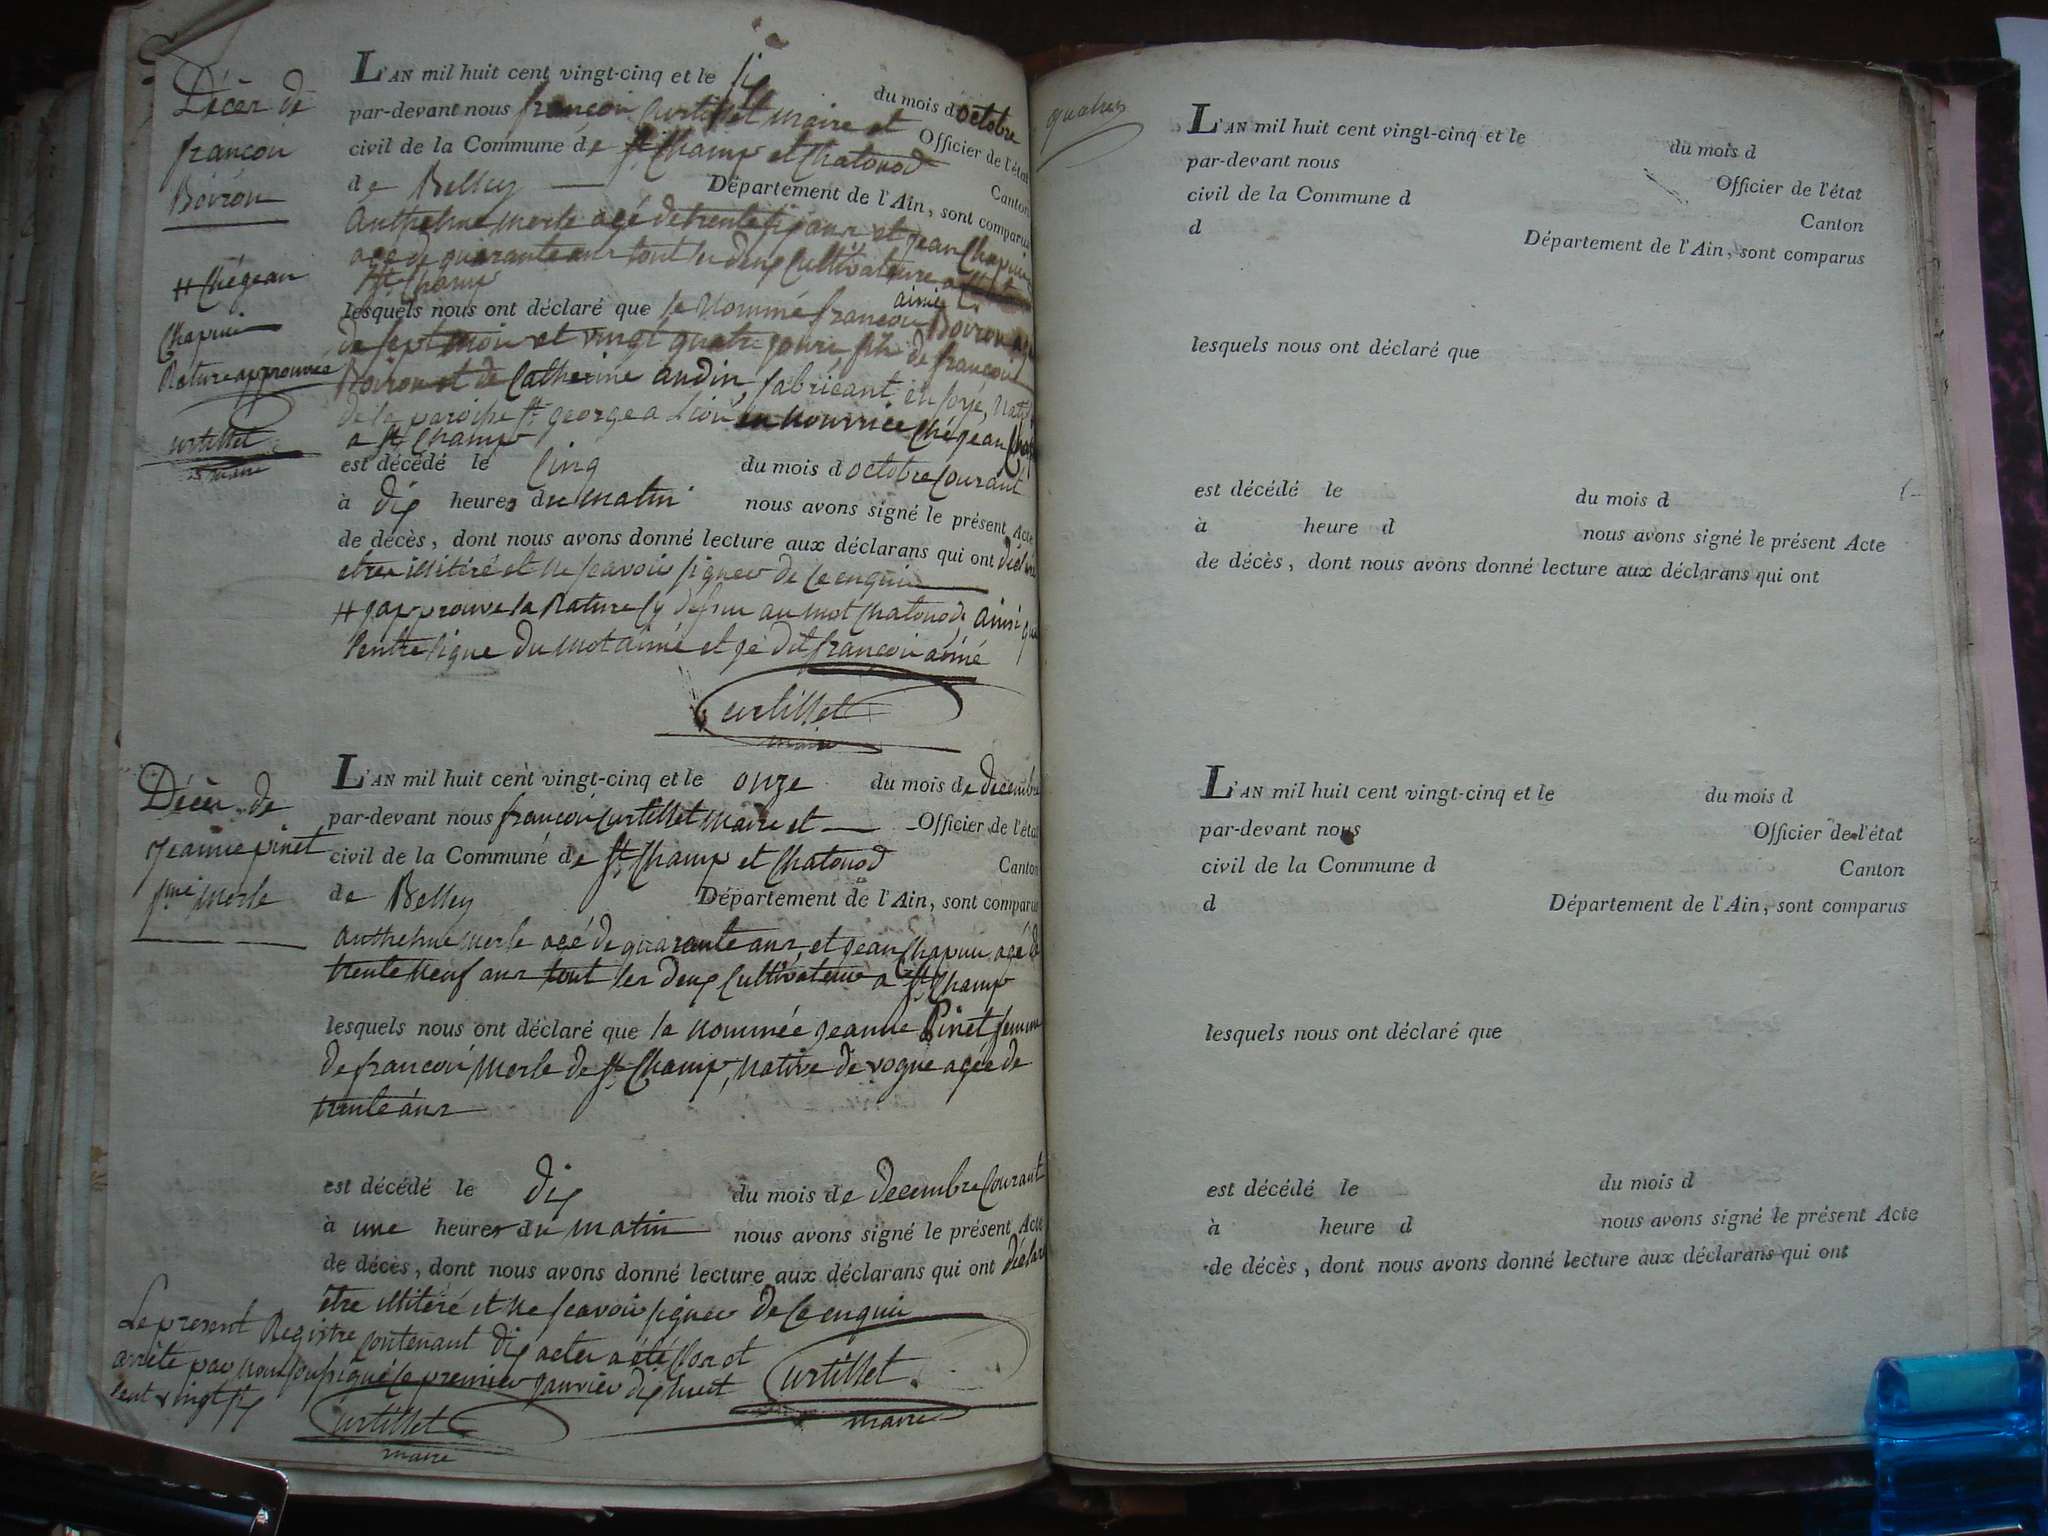 Décès de
françois
Boiron
# Chéjean
Chapuis
Rature approuvée
Curtillet
maire
L'AN mil huit cent vingt-cinq et le six du mois d octobre
par-devant nous françois Curtillet maire et Officier de l'état
civil de la Commune de St Champ et Chatonod Canton
de Belley Département de l'Ain, sont comparus
Anthelme merle agé de trente six ans et jean Chapuis
agé de quarante ans tout les deux Cultivateurs a
St Champ
lesquels nous ont déclaré que le nommé françois aimé Boiron agé
de sept mois et vingt quatre jours fils de françois
Boiron et de Catherine audin, fabricant en soye, natif
de la paroisse St george a Lion en nourrice Chéjean
a St Champ
est décédé le cinq du mois d octobre Courant
à dix heures du matin nous avons signé le présent Acte
de décès, dont nous avons donné lecture aux déclarans qui ont déclaré
etre illitéré et ne scavoir signer de ce enquis
# japprouve la Rature cy dessus au mot chatonod, ainsi que
lentre ligne du mot aimé et je dit françois aimé
Curtillet
maire
Décès de
Jeanne pinet
fme merle
L'AN mil huit cent vingt-cinq et le onze du mois de decembre
par-devant nous françois Curtillet maire et Officier de l'état
civil de la Commune de St Champ et Chatonod Canton
de Belley Département de l'Ain, sont comparus
Anthelme merle agé de quarante ans, et jean Chapuis agé de
trente neuf ans tout les deux Cultivateurs a St Champ
lesquels nous ont déclaré que la nommée jeanne Pinet femme
de françois Merle de St Champ, native de vogne agée de
trente ans
est décédé le dix du mois de decembre Courant
à une heures du matin nous avons signé le présent Acte
de décès, dont nous avons donné lecture aux déclarans qui ont déclaré
etre illitéré et ne scavoir signer de ce enquis
Le present Registre contenant dix actes a été clos et
arrêté par nous soussigné le premier janvier dix huit
cent vingt six
Curtillet
maire
Curtillet
maire
L'AN mil huit cent vingt-cinq et le du mois d
par-devant nous Officier de l'état
civil de la Commune d Canton
d Département de l'Ain, sont comparus
lesquels nous ont déclaré que
est décédé le du mois d
à heure d nous avons signé le présent Acte
de décès, dont nous avons donné lecture aux déclarans qui ont
L'AN mil huit cent vingt-cinq et le du mois d
par-devant nous Officier de l'état
civil de la Commune d Canton
d Département de l'Ain, sont comparus
lesquels nous ont déclaré que
est décédé le du mois d
à heure d nous avons signé le présent Acte
de décès, dont nous avons donné lecture aux déclarans qui ont